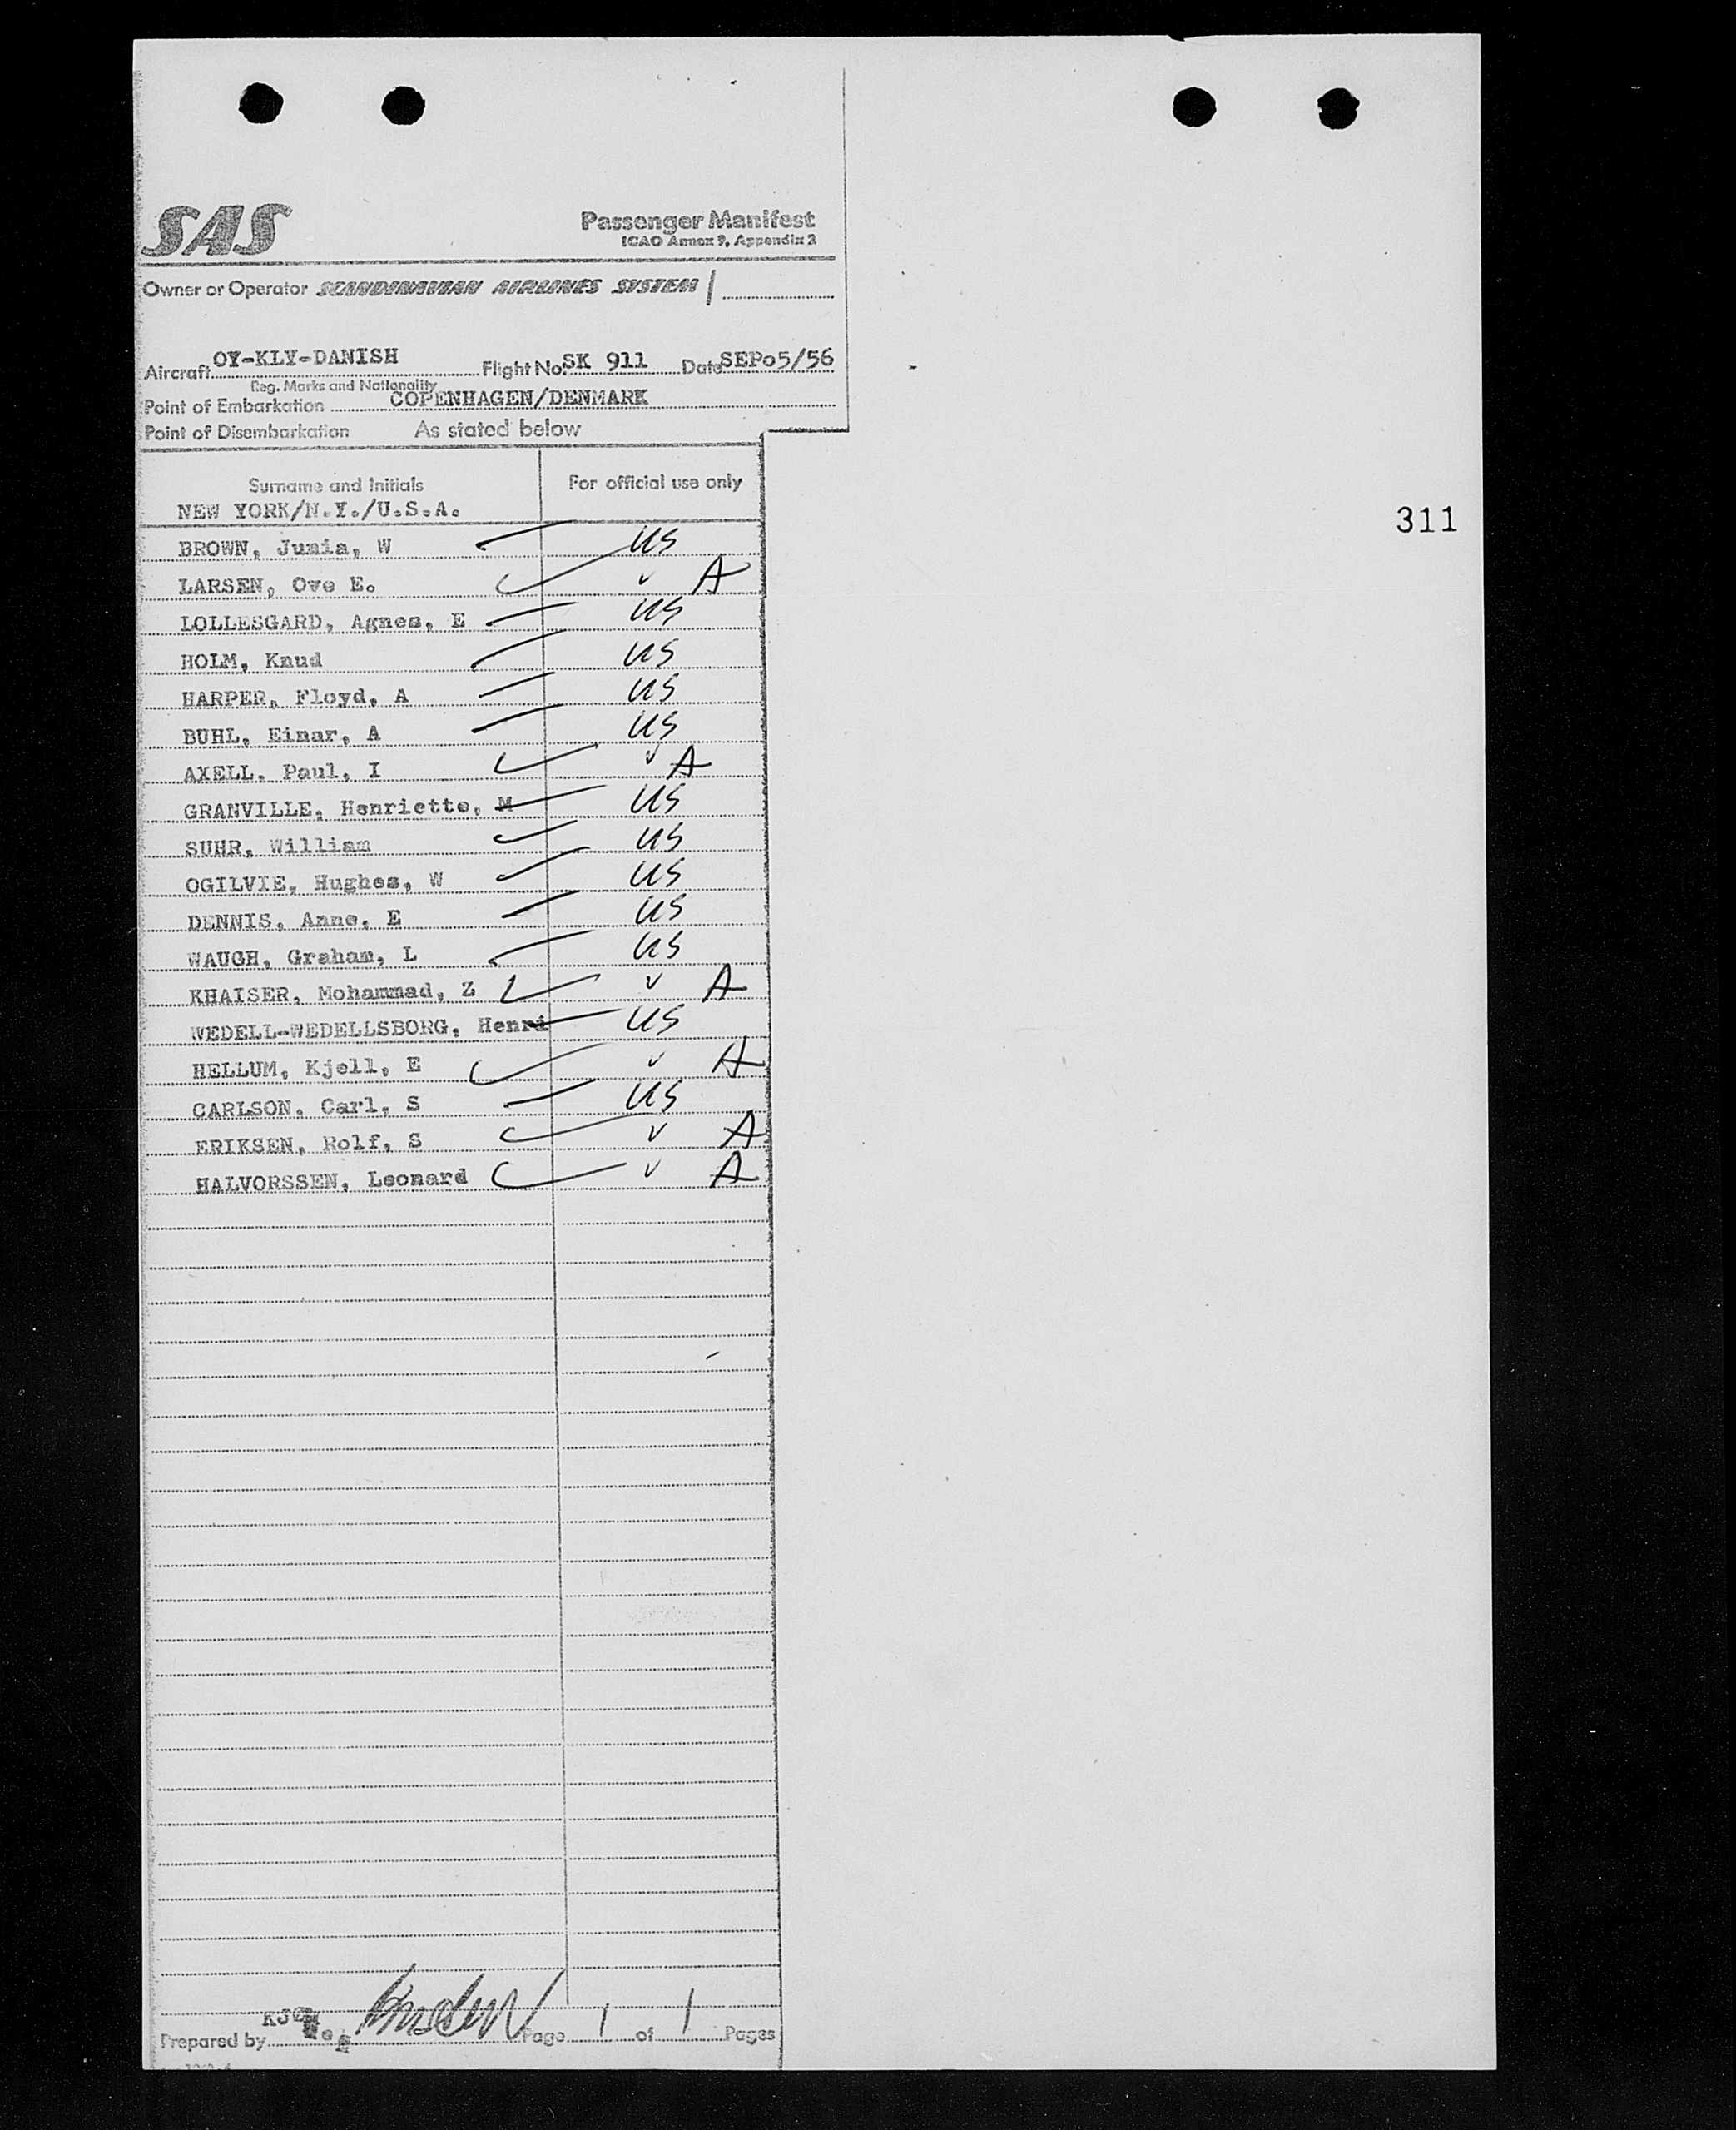 SAS
Passenger Manifest
ICAO Annex 9, Appendix 2
Owner or Operator SCANDINAVIAN AIRLINES SYSTEM
Aircraft OY-KLY-DANISH Flight No. SK 911 Date SEP05/56
Reg. Marks and Nationality
Point of Embarkation COPENHAGEN/DENMARK
Point of Disembarkation As stated below
Surname and Initials For official use only
NEW YORK/N.Y./U.S.A.
311
BROWN, Junia, W US
LARSEN, Ove E. ✓ A
LOLLESGARD, Agnes, E US
HOLM, Knud US
HARPER, Floyd, A US
BUHL, Einar, A US
AXELL, Paul, I ✓ A
GRANVILLE, Henriette, M US
SUHR, William US
OGILVIE, Hughes, W US
DENNIS, Anne, E US
WAUGH, Graham, L US
KHAISER, Mohammad, Z ✓ A
WEDELL-WEDELLSBORG, Henri US
HELLUM, Kjell, E ✓ A
CARLSON, Carl, S US
ERIKSEN, Rolf, S ✓ A
HALVORSSEN, Leonard ✓ A
Prepared by Page 1 of 1 Pages